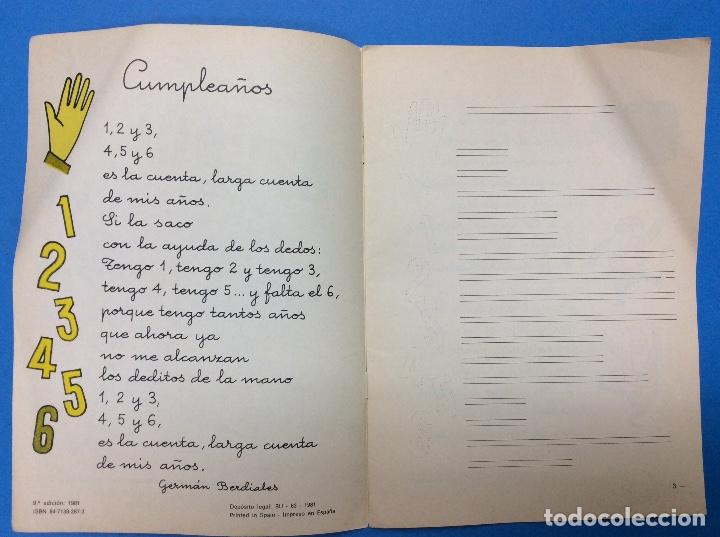 Cumpleaños
1, 2 y 3,
4, 5 y 6
es la cuenta, larga cuenta
de mis años.
Si la saco
con la ayuda de los dedos:
Tengo 1, tengo 2 y tengo 3,
tengo 4, tengo 5... y falta el 6,
porque tengo tantos años
que ahora ya
no me alcanzan
los deditos de la mano
1, 2 y 3,
4, 5 y 6,
es la cuenta, larga cuenta
de mis años.
Germán Berdiales
1
2
3
4
5
6
9.ª edición: 1981
ISBN 84-7139-267-3
Depósito legal: BU - 63 - 1981
Printed in Spain - Impreso en España
3 —
todocoleccion.net